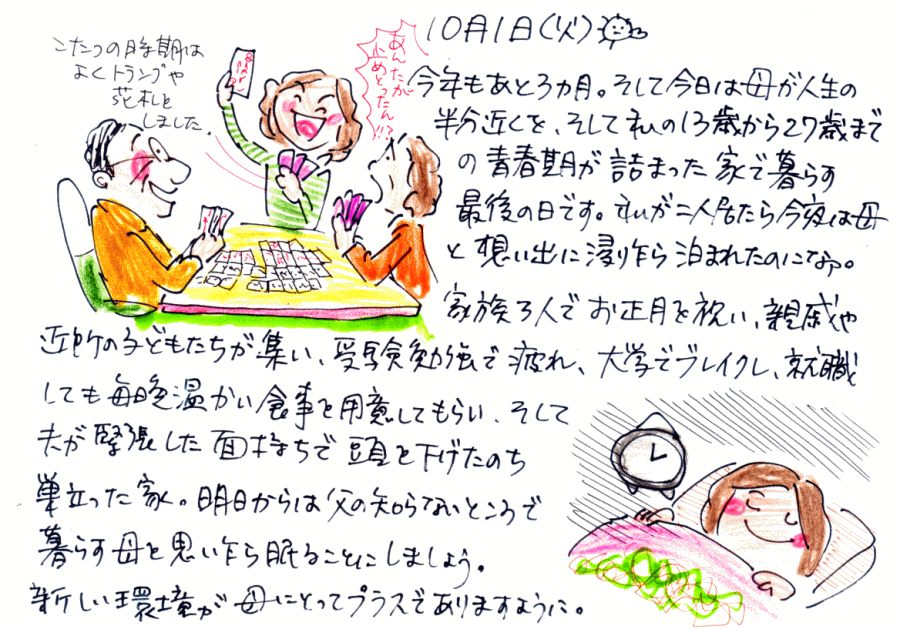 10月1日(火)
こたつの時期は
よくトランプや
花札を
しました。
あんたが
止めとったん!!?
今年もあと3ヵ月。そして今日は母が人生の
半分近くを、そして私の13歳から27歳まで
の青春期が詰まった家で暮らす
最後の日です。私が二人居たら今夜は母
と想い出に浸り乍ら泊まれたのになァ。
家族3人でお正月を祝い、親戚や
近所の子どもたちが集い、受験勉強で疲れ、大学でブレイクし、就職
しても毎晩温かい食事を用意してもらい、そして
夫が緊張した面持ちで頭を下げたのち
巣立った家。明日からは父の知らないところで
暮らす母を思い乍ら眠ることにしましょう。
新しい環境が母にとってプラスでありますように。